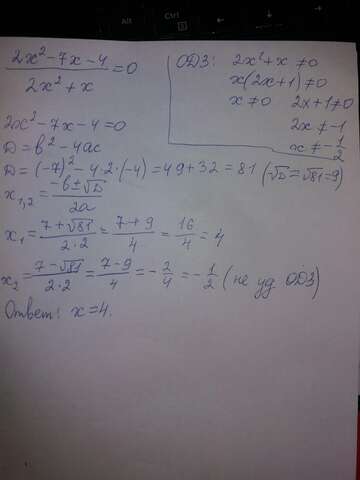 2x²-7x-4
――― =0
2x²+x
ОДЗ: 2x²+x≠0
x(2x+1)≠0
x≠0 2x+1≠0
2x≠-1
x≠-1/2
2x²-7x-4=0
D=b²-4ac
D=(-7)²-4·2·(-4)=49+32=81 (√D=√81=9)
x₁,₂=(-b±√D)/2a
x₁=(7+√81)/2·2=(7+9)/4=16/4=4
x₂=(7-√81)/2·2=(7-9)/4=-2/4=-1/2 (не уд ОДЗ)
Ответ: x=4.
Alt
Ctrl